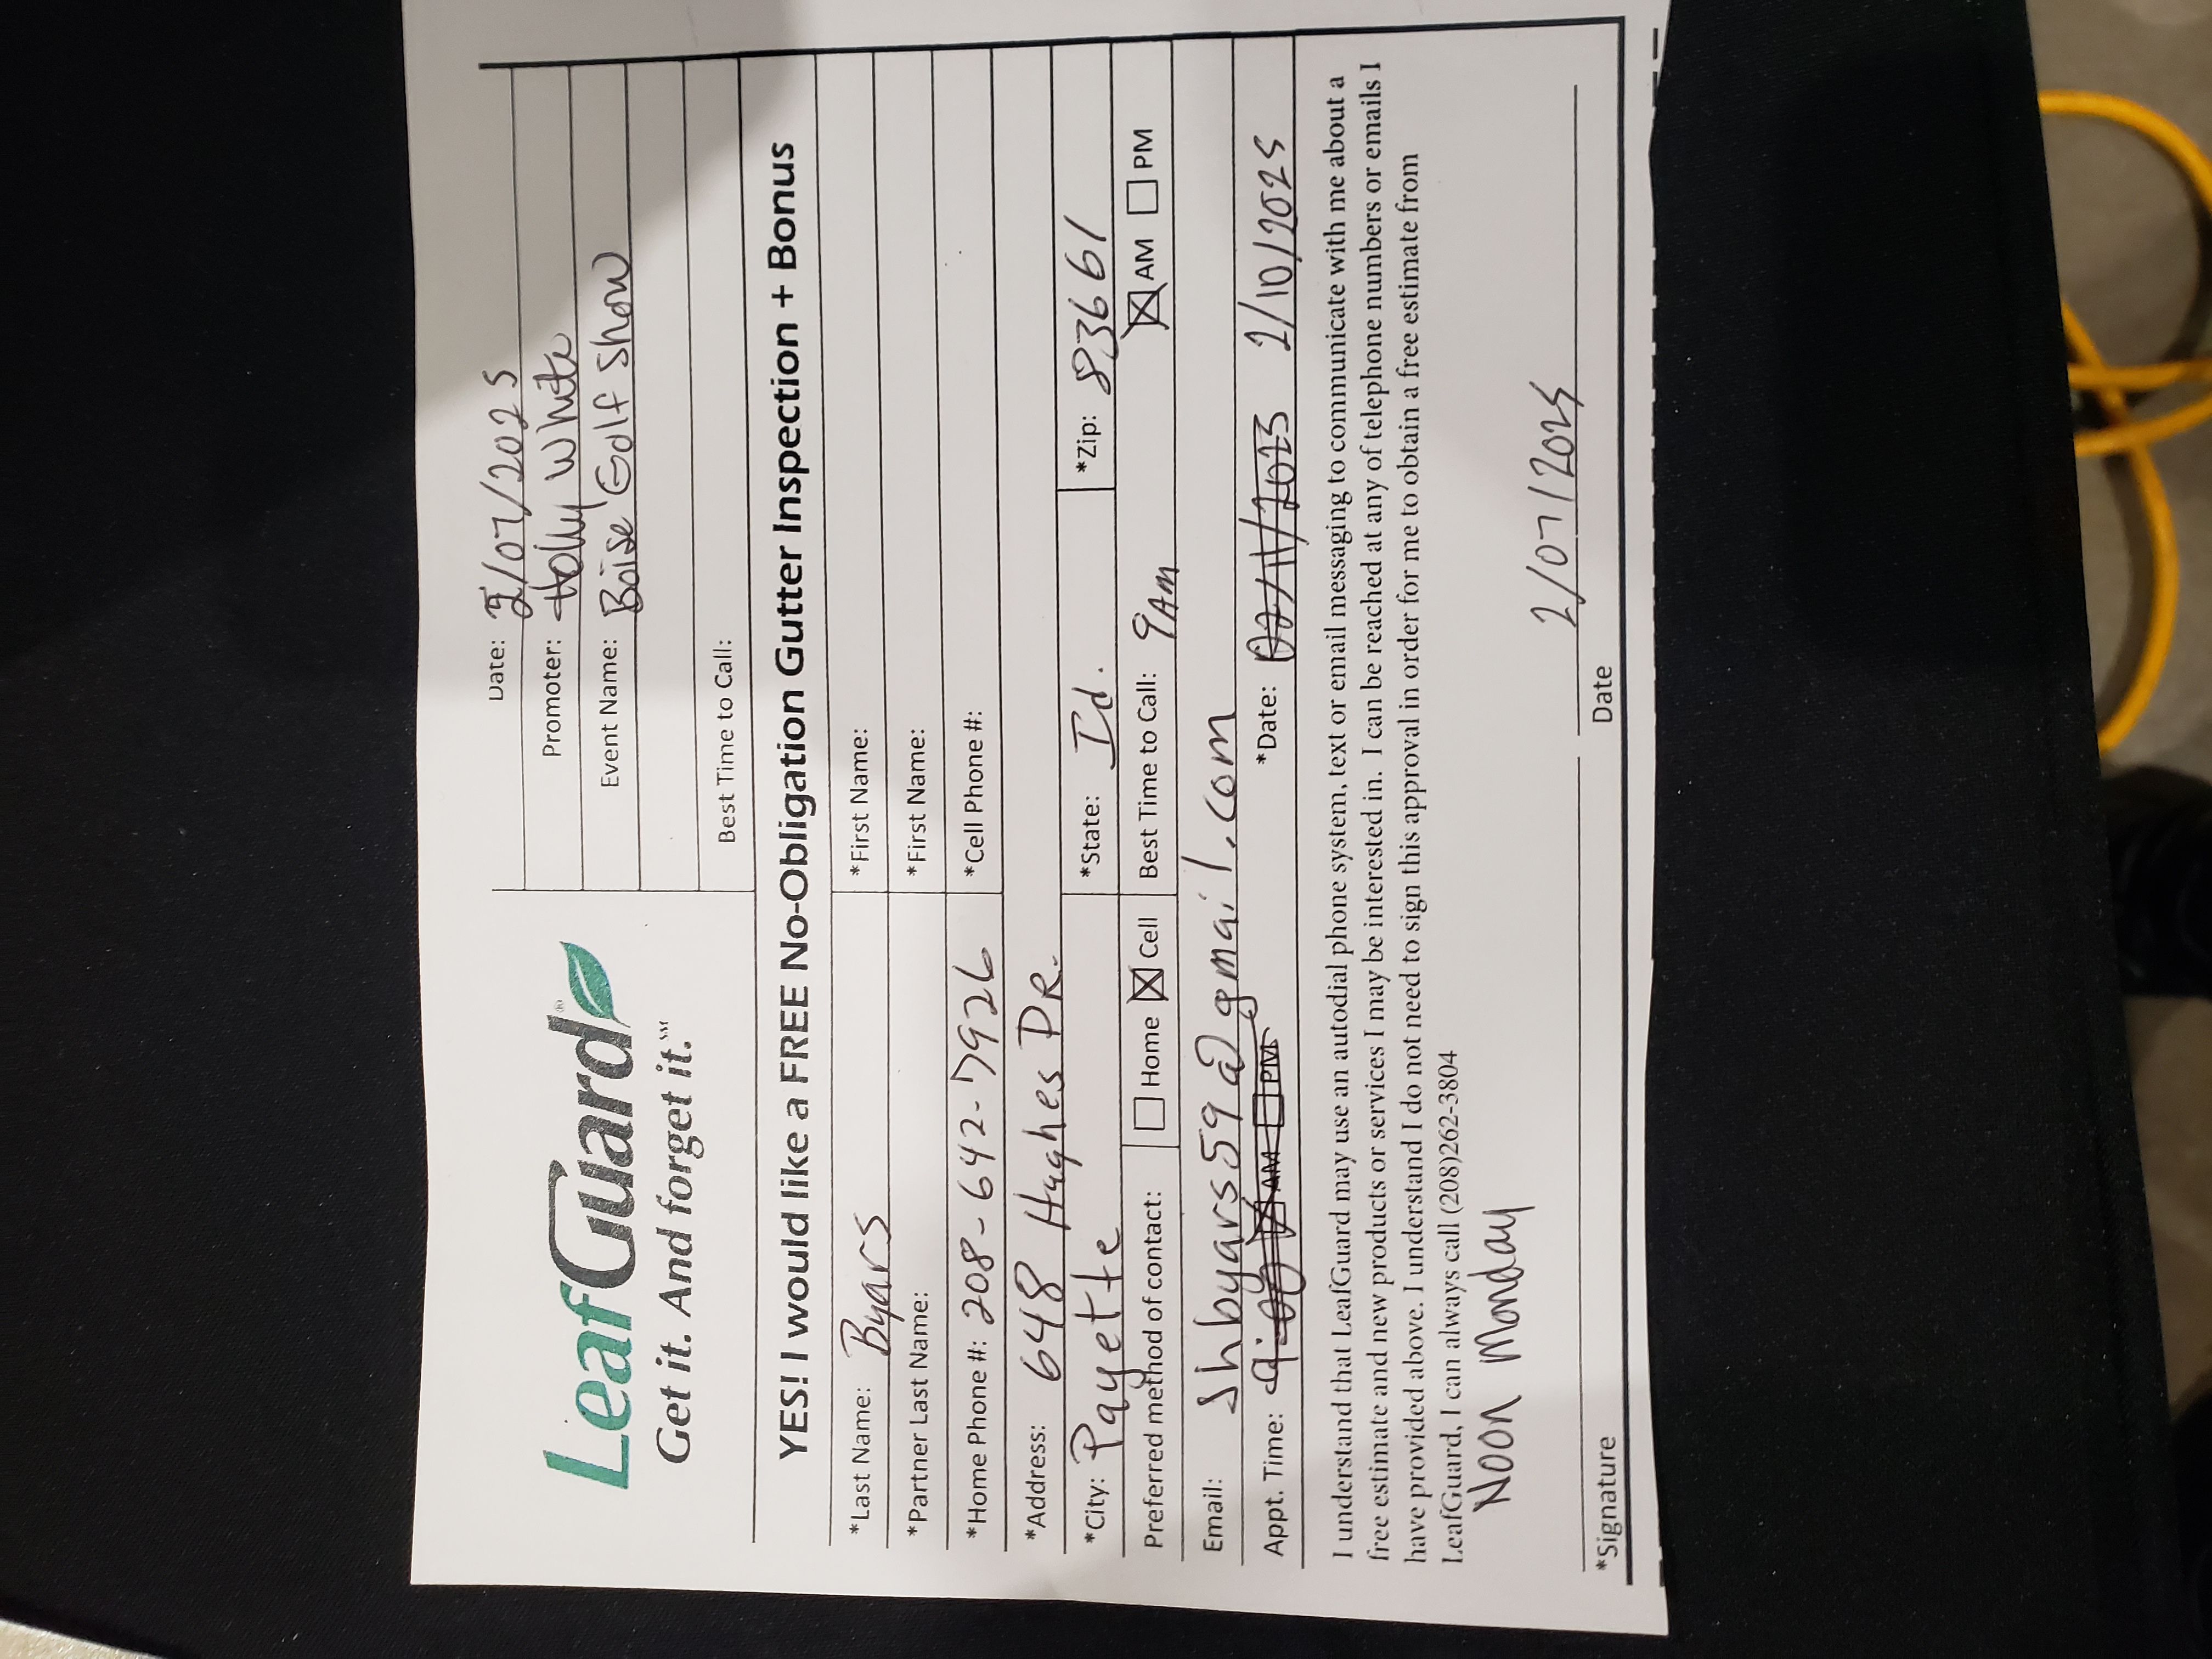 Date: 2/07/2025
Promoter: Holly White
Event Name: Boise Golf Show
Best Time to Call:
LeafGuard®
Get it. And forget it.℠
YES! I would like a FREE No-Obligation Gutter Inspection + Bonus
*Last Name: Byars *First Name:
*Partner Last Name: *First Name:
*Home Phone #: 208-642-7926 *Cell Phone #:
*Address: 648 Hughes DR.
*City: Payette *State: Id. *Zip: 83661
Preferred method of contact: ☐ Home ☒ Cell Best Time to Call: 9AM ☒ AM ☐ PM
Email: Shbyars59@gmail.com
Appt. Time: 9:00 ☒ AM ☐ PM *Date: 02/11/2025 2/10/2025
I understand that LeafGuard may use an autodial phone system, text or email messaging to communicate with me about a
free estimate and new products or services I may be interested in. I can be reached at any of telephone numbers or emails I
have provided above. I understand I do not need to sign this approval in order for me to obtain a free estimate from
LeafGuard, I can always call (208)262-3804
Noon Monday
2/07/2025
*Signature Date